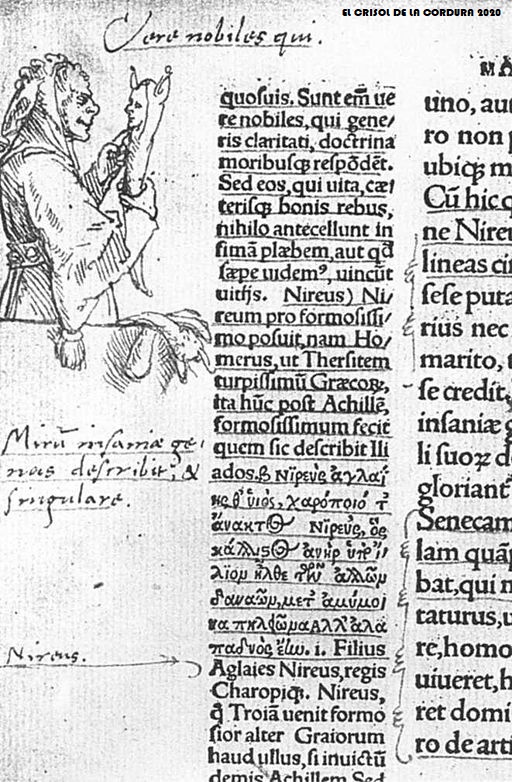 EL CRISOL DE LA CORDURA 2020
Vere nobiles qui.
Mirū insaniæ ge-
nus describit, &
singulare.
Nireus.
quosuis. Sunt em̄ ue
re nobiles, qui gene/
ris claritati, doctrina
moribusq; respōdēt.
Sed eos, qui uita, cæ/
terisq; bonis rebus,
nihilo antecellunt in
fimā plæbem, aut qd
sæpe uidemꝰ, uincūt
uitijs. Nireus) Ni/
reum pro formosissi/
mo posuit, nam Ho/
merus, ut Thersitem
turpissimū Græcoꝝ,
ita hūc post Achillē,
formosissimum fecit
quem sic describit Ili
ados.β Νιρεὺς ἀγλαΐ
ης θ' υἱὸς, χαρόποιό τ'
ἄνακτος Νιρεὺς, ὃς
κάλλιςος ἀνὴρ ὑπὸ ἴ/
λιον ἦλθε τῶν ἄλλων
δαναῶν, μετ' ἀμύμο
να πηλείωνα Ἀλλ' ἀλα
παδνὸς ἔην. i. Filius
Aglaies Nireus, regis
Charopiq;. Nireus,
q̄ Troiā uenit formo
sior alter Graiorum
haud ullus, si inuictū
demis Achillem Sed
MA
uno, aut
ro non p
ubiq; m
Cū hic q
ne Nireu
lineas cir
sese puta
rius nec
marito, t
se credit,
insaniæ g
li suoꝝ d
gloriantᷣ
Senecam
lam quāp
bat, qui n
taturus, u
re, homo
uiueret, h
ret domi
ro de arti